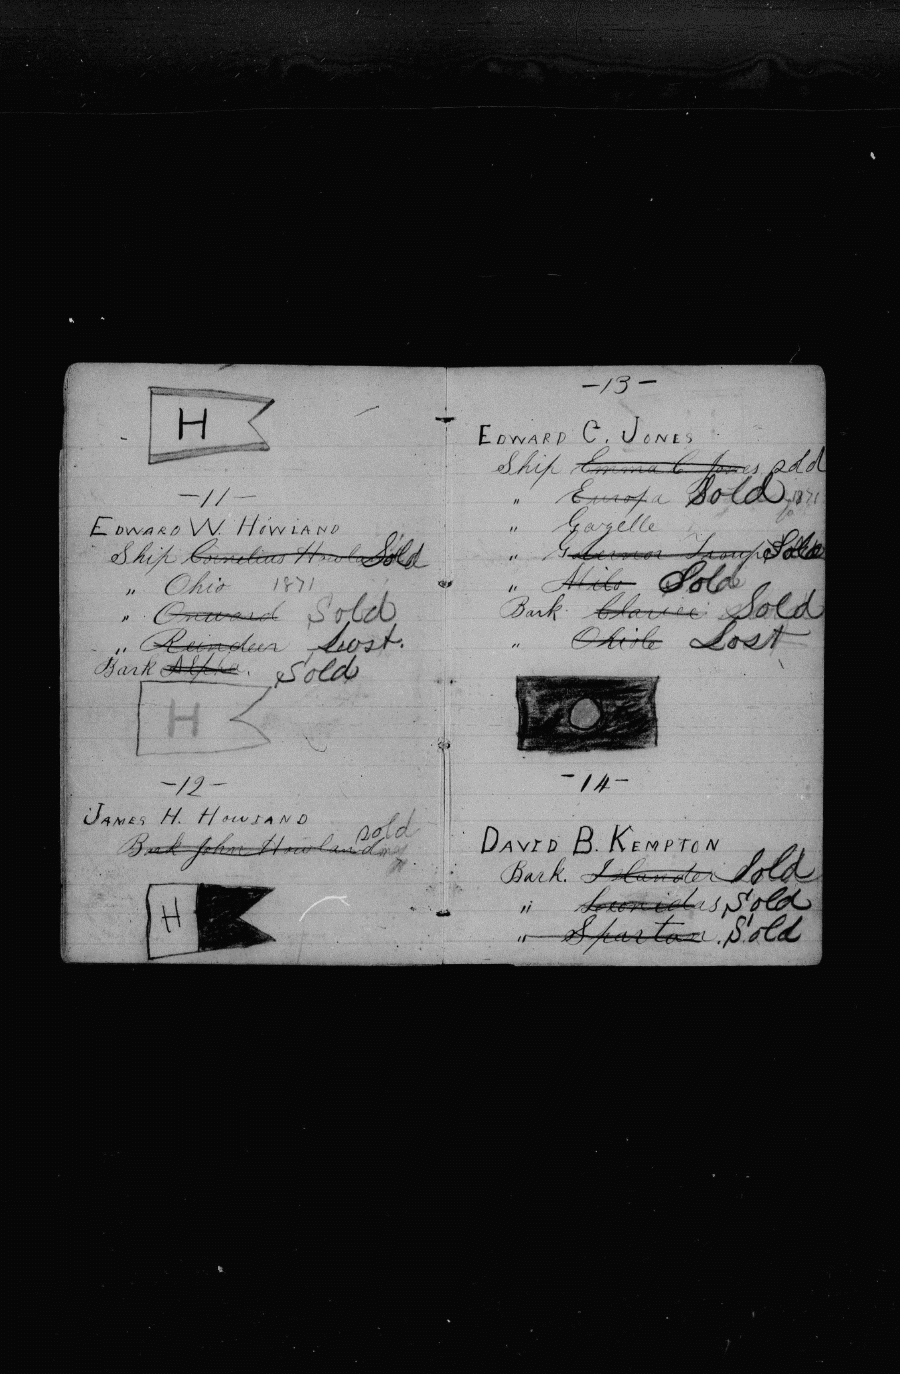 H
-11-
EDWARD W. HOWLAND
Ship Cornelius Howland Sold
" Ohio 1871
" Onward Sold
" Reindeer Lost.
Bark Alpha. Sold
H
-12-
JAMES H. HOWLAND
sold
Bark John Howland
H
-13-
EDWARD C. JONES
Ship Emma C Jones sold
" Europa Sold 1871
" Gazelle
" Governor Troup Sold
" Milo Sold
Bark Sold
" Lost
-14-
DAVID B. KEMPTON
Bark. Islander Sold
" Leonidas Sold
" Spartan. Sold